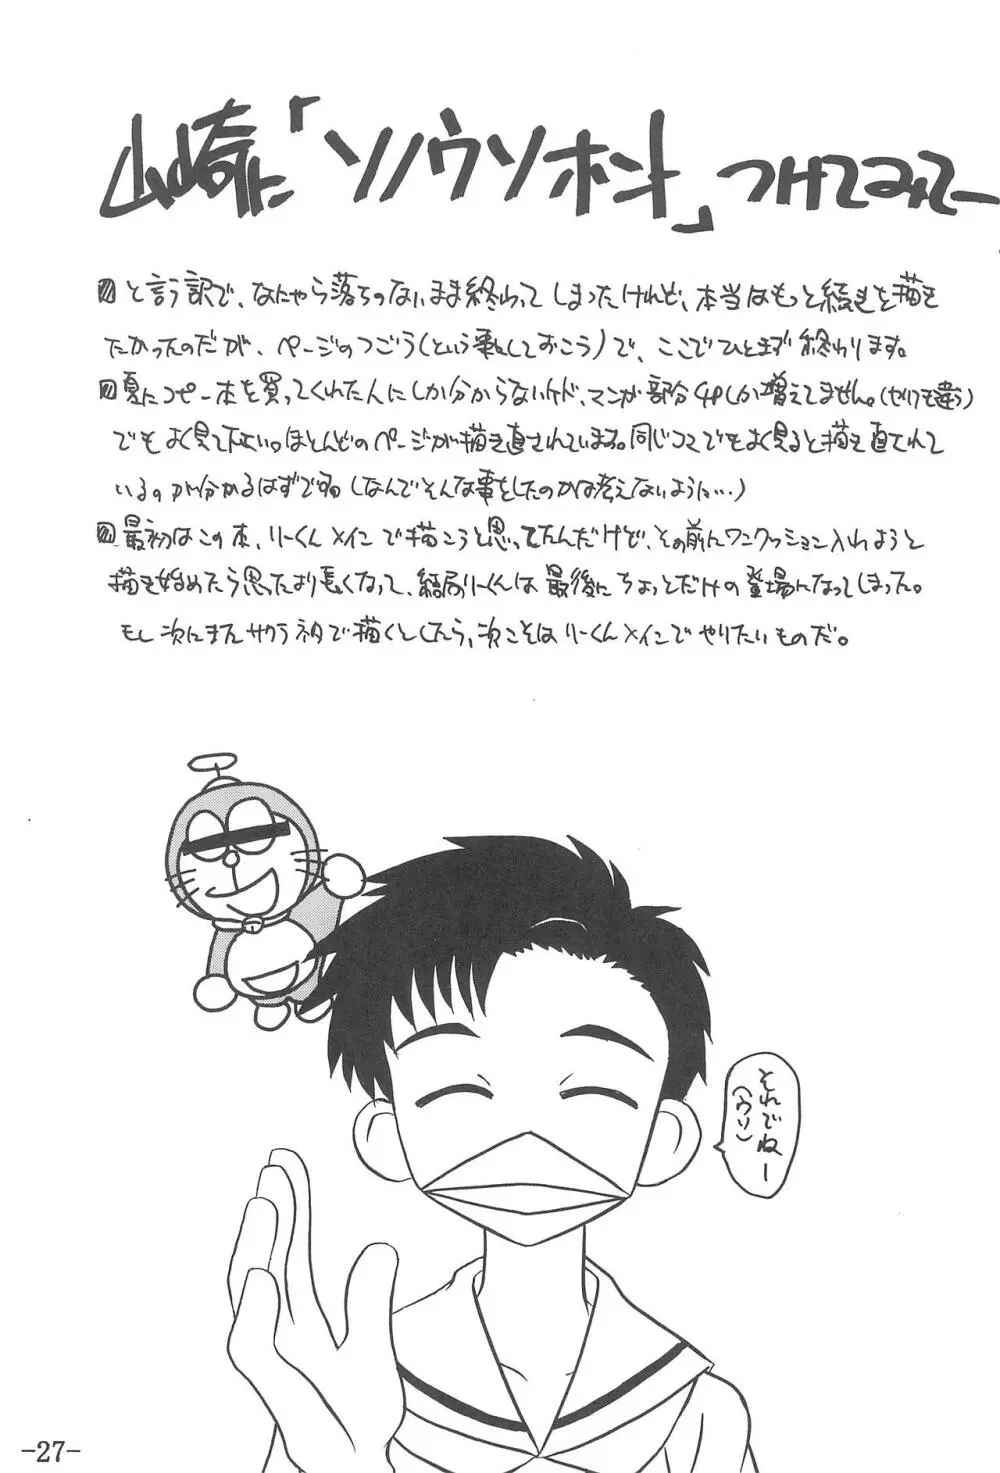 山崎に「ソノウソホント」つけてみてー
と言う訳で、なにやら落ちのないまま終わってしまったけれど、本当はもっと続きを描き
たかったのだが、ページのつごう(という事にしておこう)で、ここでひとまず終わります。
夏にコピー本を買ってくれた人にしか分からないケド、マンガ部分4Pしか増えてません。
でもよく見て下さいっほとんどのページが描き直されています。同じコマでもよく見ると描き直されて
いるのが分かるはずです。(なんでそんな事をしたのかは考えないように…)
最初はこの本、リーくんメインで描こうと思ってたんだけど、その前にワンクッション入れようと
描き始めたら思ったより長くなって、結局リーくんは最後にちょっとだけの登場になってしまった。
もし次にまたサクラネタで描くとしたら、次こそはリーくんメインでやりたいものだ。
それでねー
(ウソ)
-27-